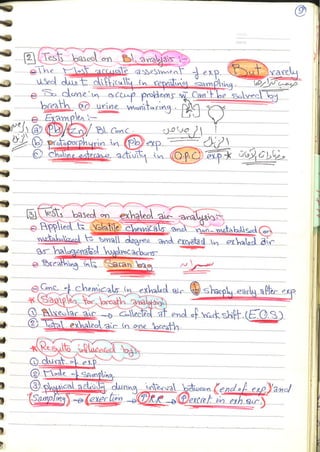 2 Tests based on Bl. analysis:-
The Most accurate assessment of exp. But rarely
used due to difficulty in repeating sampling.
So done in occup problems Can't be solved by
breath or urine monitoring.
Examples:-
a) Pb, Zn / Bl Conc
b) protoporphyrin in Pb exp.
c) Choline esterase activity in OPC exp.
3 Tests based on exhaled air analysis:-
Applied to Volatile chemicals and non-metabolised or
metabolized to small degree and excreted in exhaled air
as halogenated hydrocarbons
Breathing into Saran bag
Conc of chemicals in exhaled air ↓ sharply early after exp
* Samples for breath analysis
1 Alveolar air → Collected at end of work shift. (E.O.S)
2 Total exhaled air in one breath
* Results influenced by:
1 durat. of exp
2 Mode of Sampling
3 physical activity during interval between (end of exp) and
(Sampling) → exertion → ↑RR → ↑excret. in exh. air